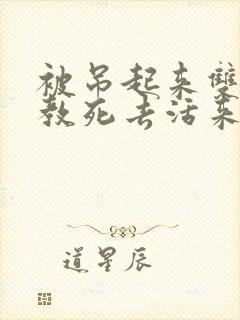 被吊起来雙
教死去活来
道星辰